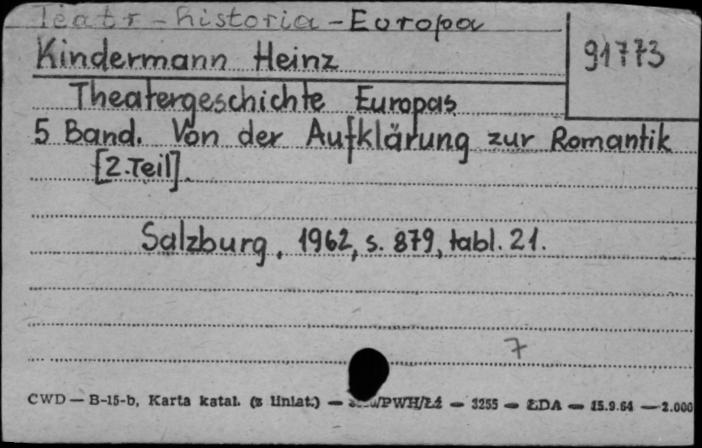 Teatr - historia - Europa
Kindermann Heinz
91773
Theatergeschichte Europas
5 Band. Von der Aufklärung zur Romantik
[2.Teil].
Salzburg, 1962, s. 879, tabl. 21.
7
CWD — B-15-b, Karta katal. (z liniat.) — /PWH/Łź — 3255 — ŁDA — 15.9.64 — 2.000